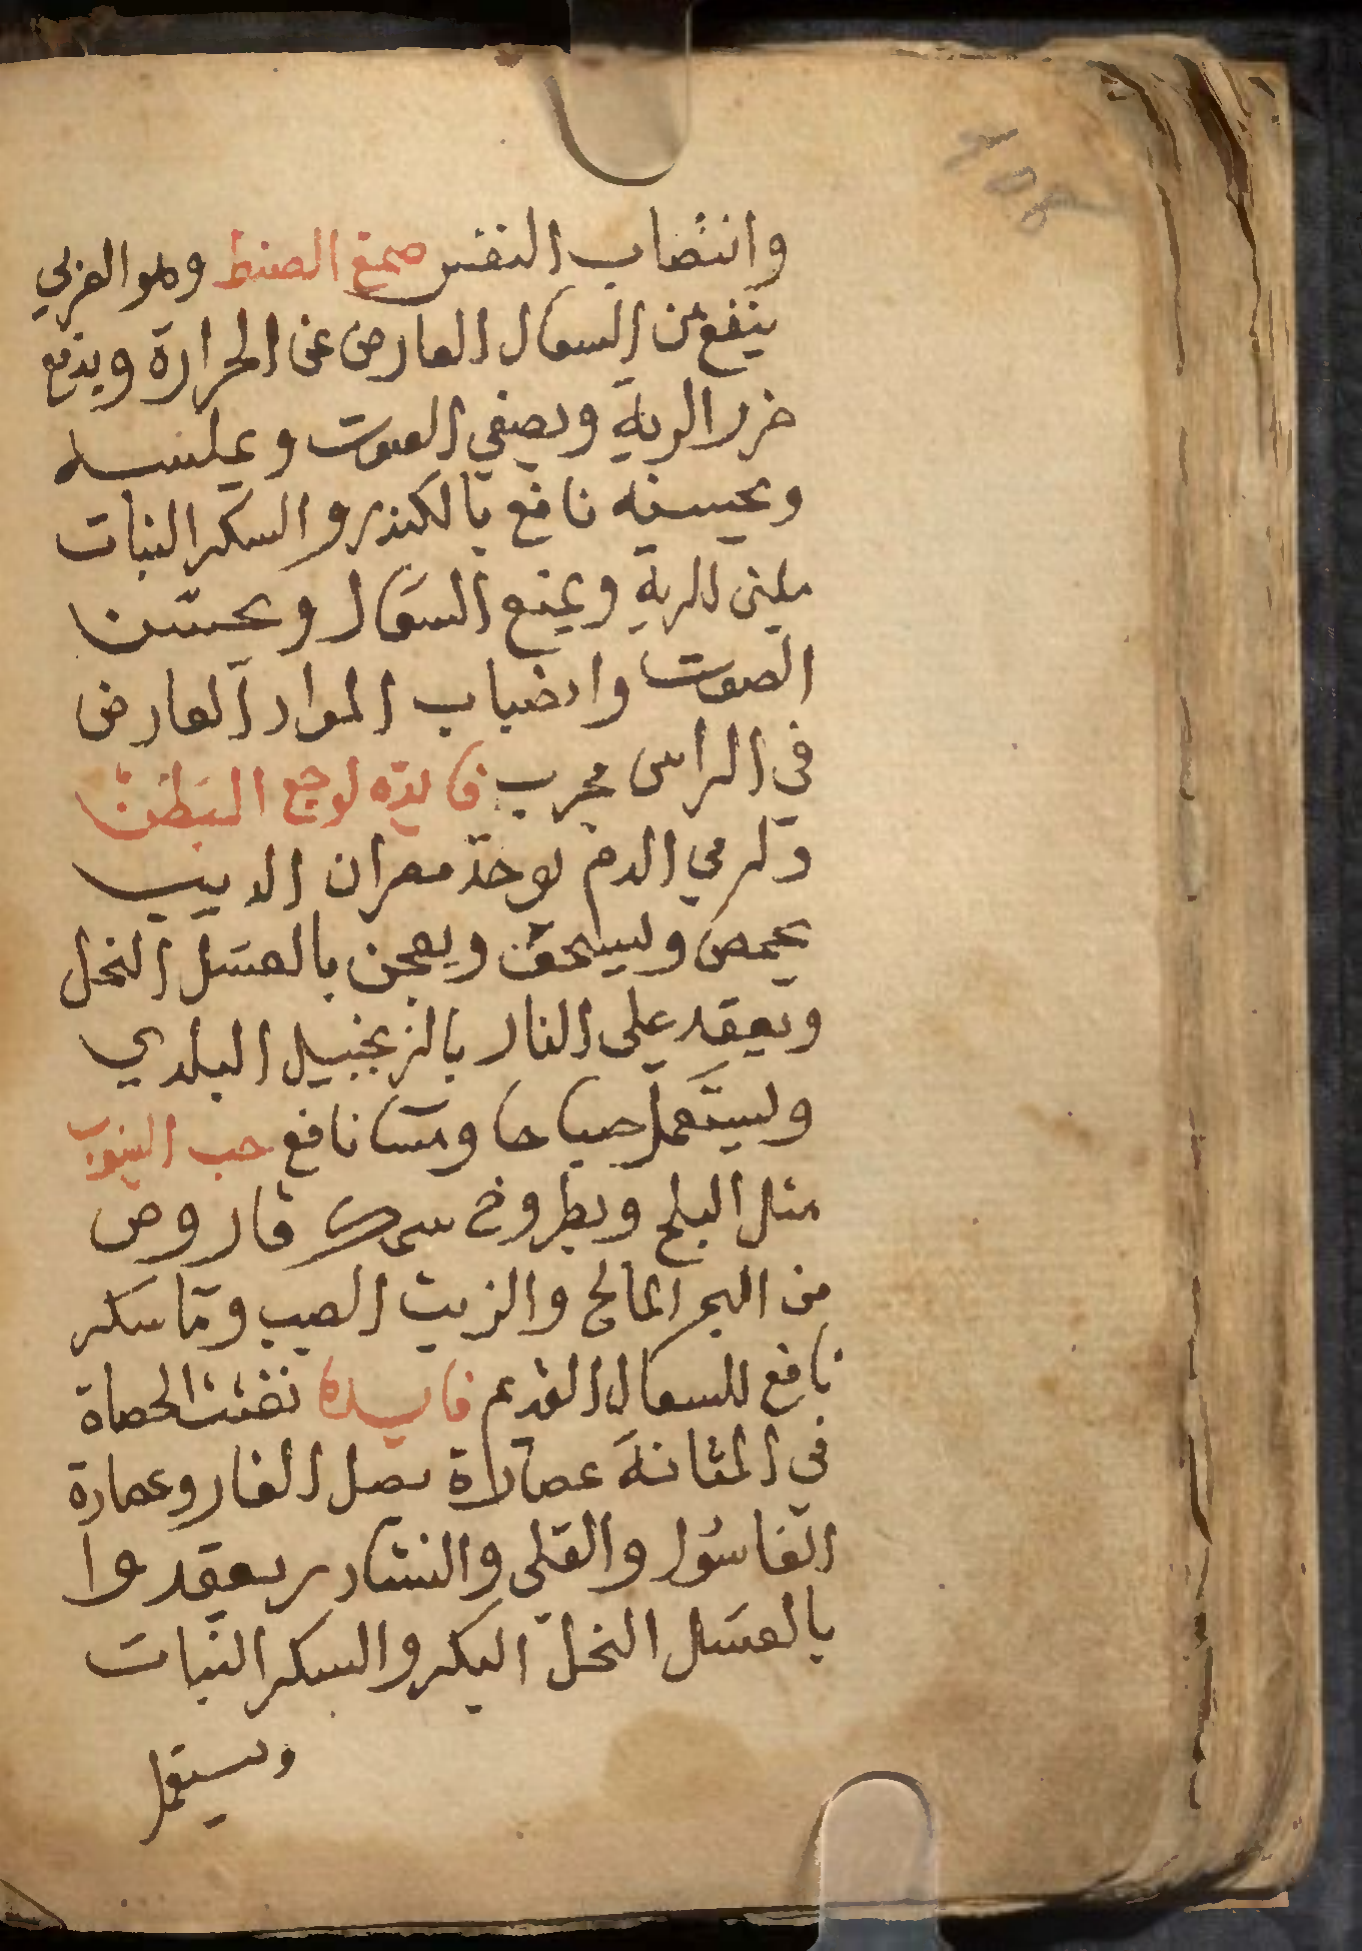 وانتصاب النفس صمغ الصنط وهو العربي
ينفع من السعال العارض عن الحرارة ويدفع
ضرر الرية ويصفي الصوت ويملسه
ويحسنه نافع بالكندر والسكر النبات
ملين للرية ويمنع السعال ويحسن
الصوت وانصباب المواد العارض
في الراس مجرب فايده لوجع البطن
ولرمي الدم يوخذ مصران الديب
يحمص ويسحق ويعجن بالعسل النحل
ويعقد على النار بالزنجبيل البلدي
ويستعمل صباحا ومسا نافع حب
مثل البلح وبطروخ سمك قاروص
من البحر المالح والزيت الطيب وما سكر
نافع للسعال القديم فايده تفتت الحصاة
في المثانة عصارة بصل الفار وعصارة
الغاسول والقلي والنشادر يعقدوا
بالعسل النحل البكر والسكر النبات
ويستعمل